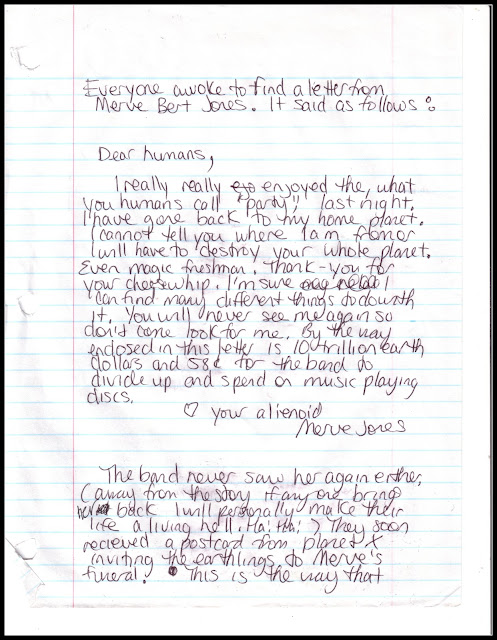 Everyone awoke to find a letter from
Merve Bert Jones. It said as follows:
Dear humans,
I really really enjoyed the, what
you humans call "party", last night.
I have gone back to my home planet.
I cannot tell you where I am from or
I will have to destroy your whole planet.
Even magic freshman. Thank-you for
your cheesewhip. I'm sure I
can find many different things to do with
it. You will never see me again so
don't come look for me. By the way
enclosed in this letter is 10 trillion earth
dollars and 58¢ for the band to
divide up and spend on music playing
discs.
♡ your alienoid
Merve Jones
The band never saw her again either.
(away from the story if anyone brings
her back I will personally make their
life a living hell. Ha! Ha! ) They soon
recieved a postcard from planet X
inviting the earthlings to Merve's
funeral. This is the way that